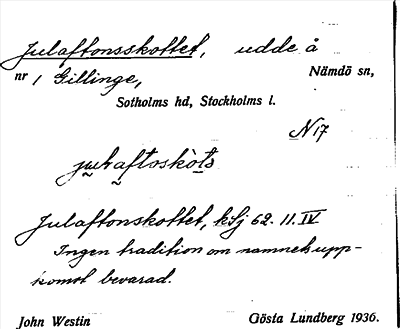 Julaftonsskottet, udde å
nr 1 Gillinge, Nämdö sn,
Sotholms hd, Stockholms l.
N 17
julaftoskòts
Julaftonskottet, kSj 62. 11. IV
Ingen tradition om namnets upp-
komst bevarad.
John Westin Gösta Lundberg 1936.